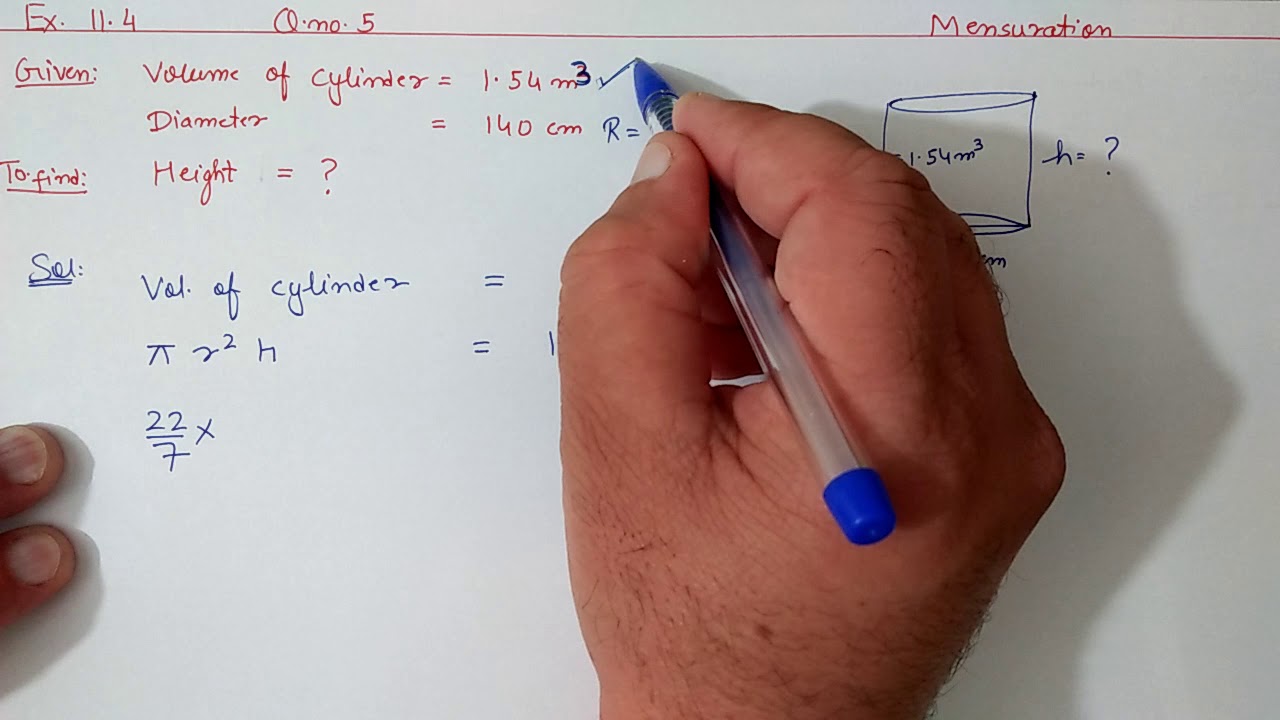 Ex. 11.4 Q.no. 5 Mensuration
Given: Volume of cylinder = 1.54 m³
Diameter = 140 cm R =
To find: Height = ?
1.54m³ h = ?
Sol:
Vol. of cylinder =
π r² h =
22/7 ×